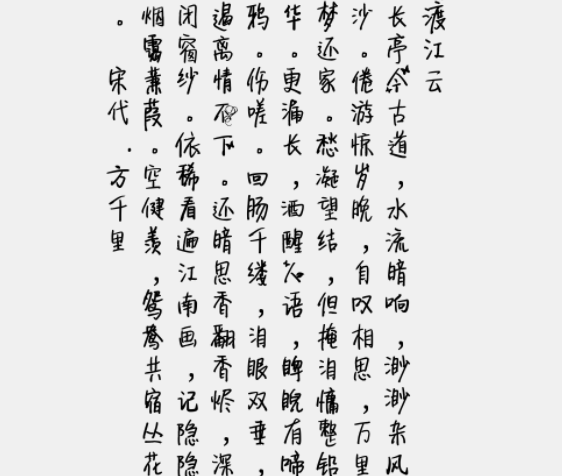 渡江云
长亭今古道，水流暗响，渺渺杂风
沙。倦游惊岁晚，自叹相思，万里
梦还家。愁凝望结，但掩泪慵整铅
华。更漏长，酒醒人语，睥睨有啼
鸦。伤嗟。回肠千缕，泪眼双垂，
遏离情不下。还暗思香翻香烬，深
闭窗纱。依稀看遍江南画，记隐隐
烟霭蒹葭。空健羡，鸳鸯共宿丛花
。 宋代.方千里